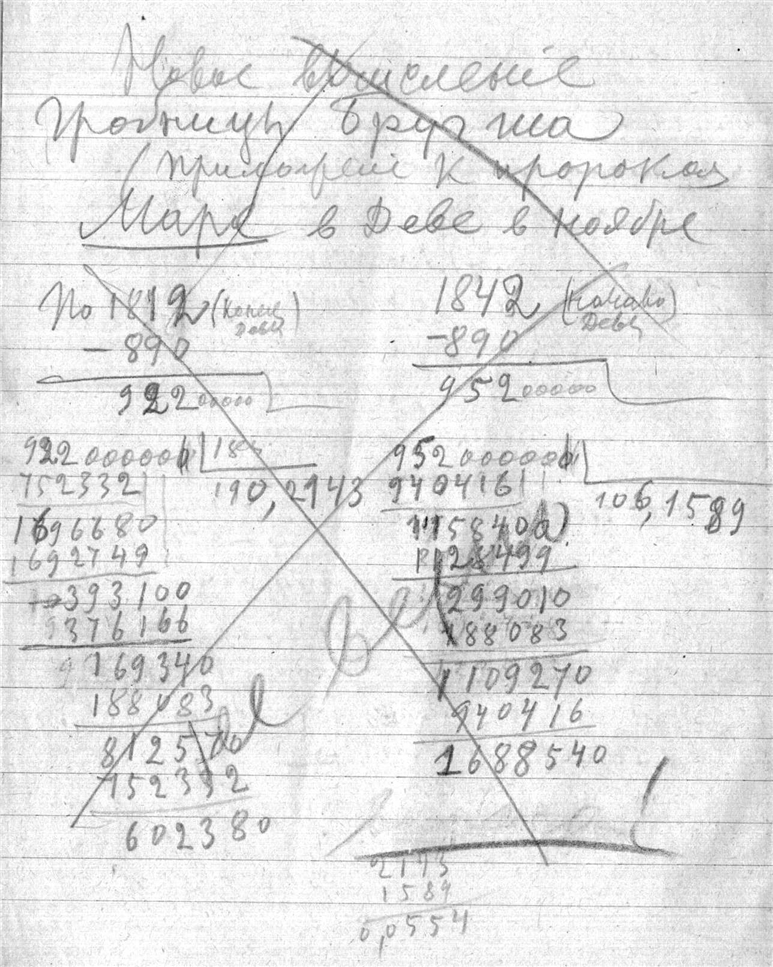 Новое вычисление
Гробницы Бругша
(Приложение к пророкам
Марс в Деве в ноябре
По 1812 (Конец Девы)
– 890
92200000
92200000000
752332
1696680
1692749
393100
376166
169340
188083
812570
752332
602380
190,2943
1842 (начало Девы)
–890
95200000
95200000000
9404161
1158400
1128499
299010
188083
1109270
940416
1688540
106,1589
не верно!
1589
0,0554